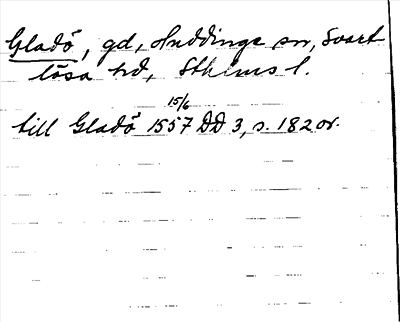 Gladö, gd, Huddinge sn, Svart
lösa hd, Sthlms l.
15/6
till Gladö 1557 DD 3, s. 182 or.